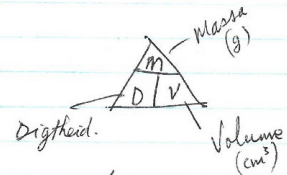 Massa
(g)
m
D V
Digtheid.
Volume
(cm³)